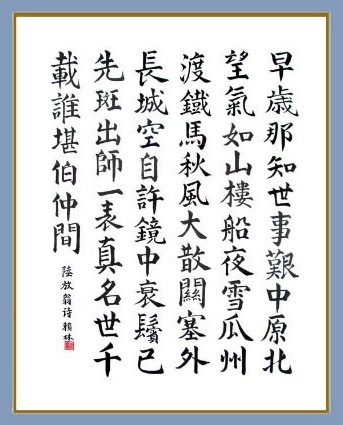 早歲那知世事艱中原北
望氣如山樓船夜雪瓜州
渡鐵馬秋風大散關塞外
長城空自許鏡中衰鬢已
先斑出師一表真名世千
載誰堪伯仲間
陸放翁诗